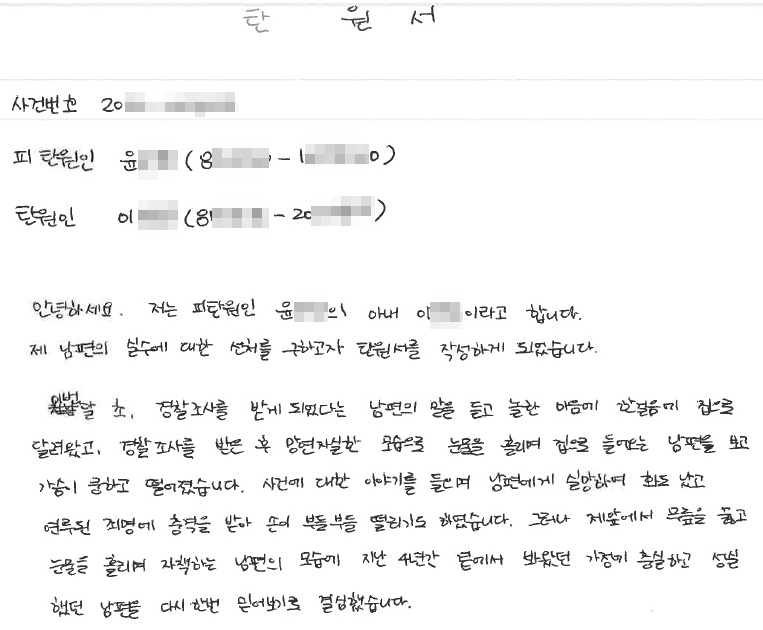 탄 원 서
사건번호 20
피탄원인 윤 (8 - 1 0)
탄원인 이 (8 - 20 )
안녕하세요. 저는 피탄원인 윤 의 아내 이 이라고 합니다.
제 남편의 실수에 대한 선처를 구하고자 탄원서를 작성하게 되었습니다.
달 초, 경찰조사를 받게 되었다는 남편의 말을 듣고 놀란 마음에 한걸음에 집으로
달려왔고, 경찰조사를 받은 후 망연자실한 모습으로 눈물을 흘리며 집으로 들어오는 남편을 보고
가슴이 쿵하고 떨어졌습니다. 사건에 대한 이야기를 들으며 남편에게 실망하여 화도 났고
연루된 죄명에 충격을 받아 손이 부들부들 떨리기도 하였습니다. 그러나 제앞에서 무릎을 꿇고
눈물을 흘리며 자책하는 남편의 모습에 지난 4년간 곁에서 봐왔던 가정에 충실하고 성실
했던 남편을 다시한번 믿어보기로 결심했습니다.